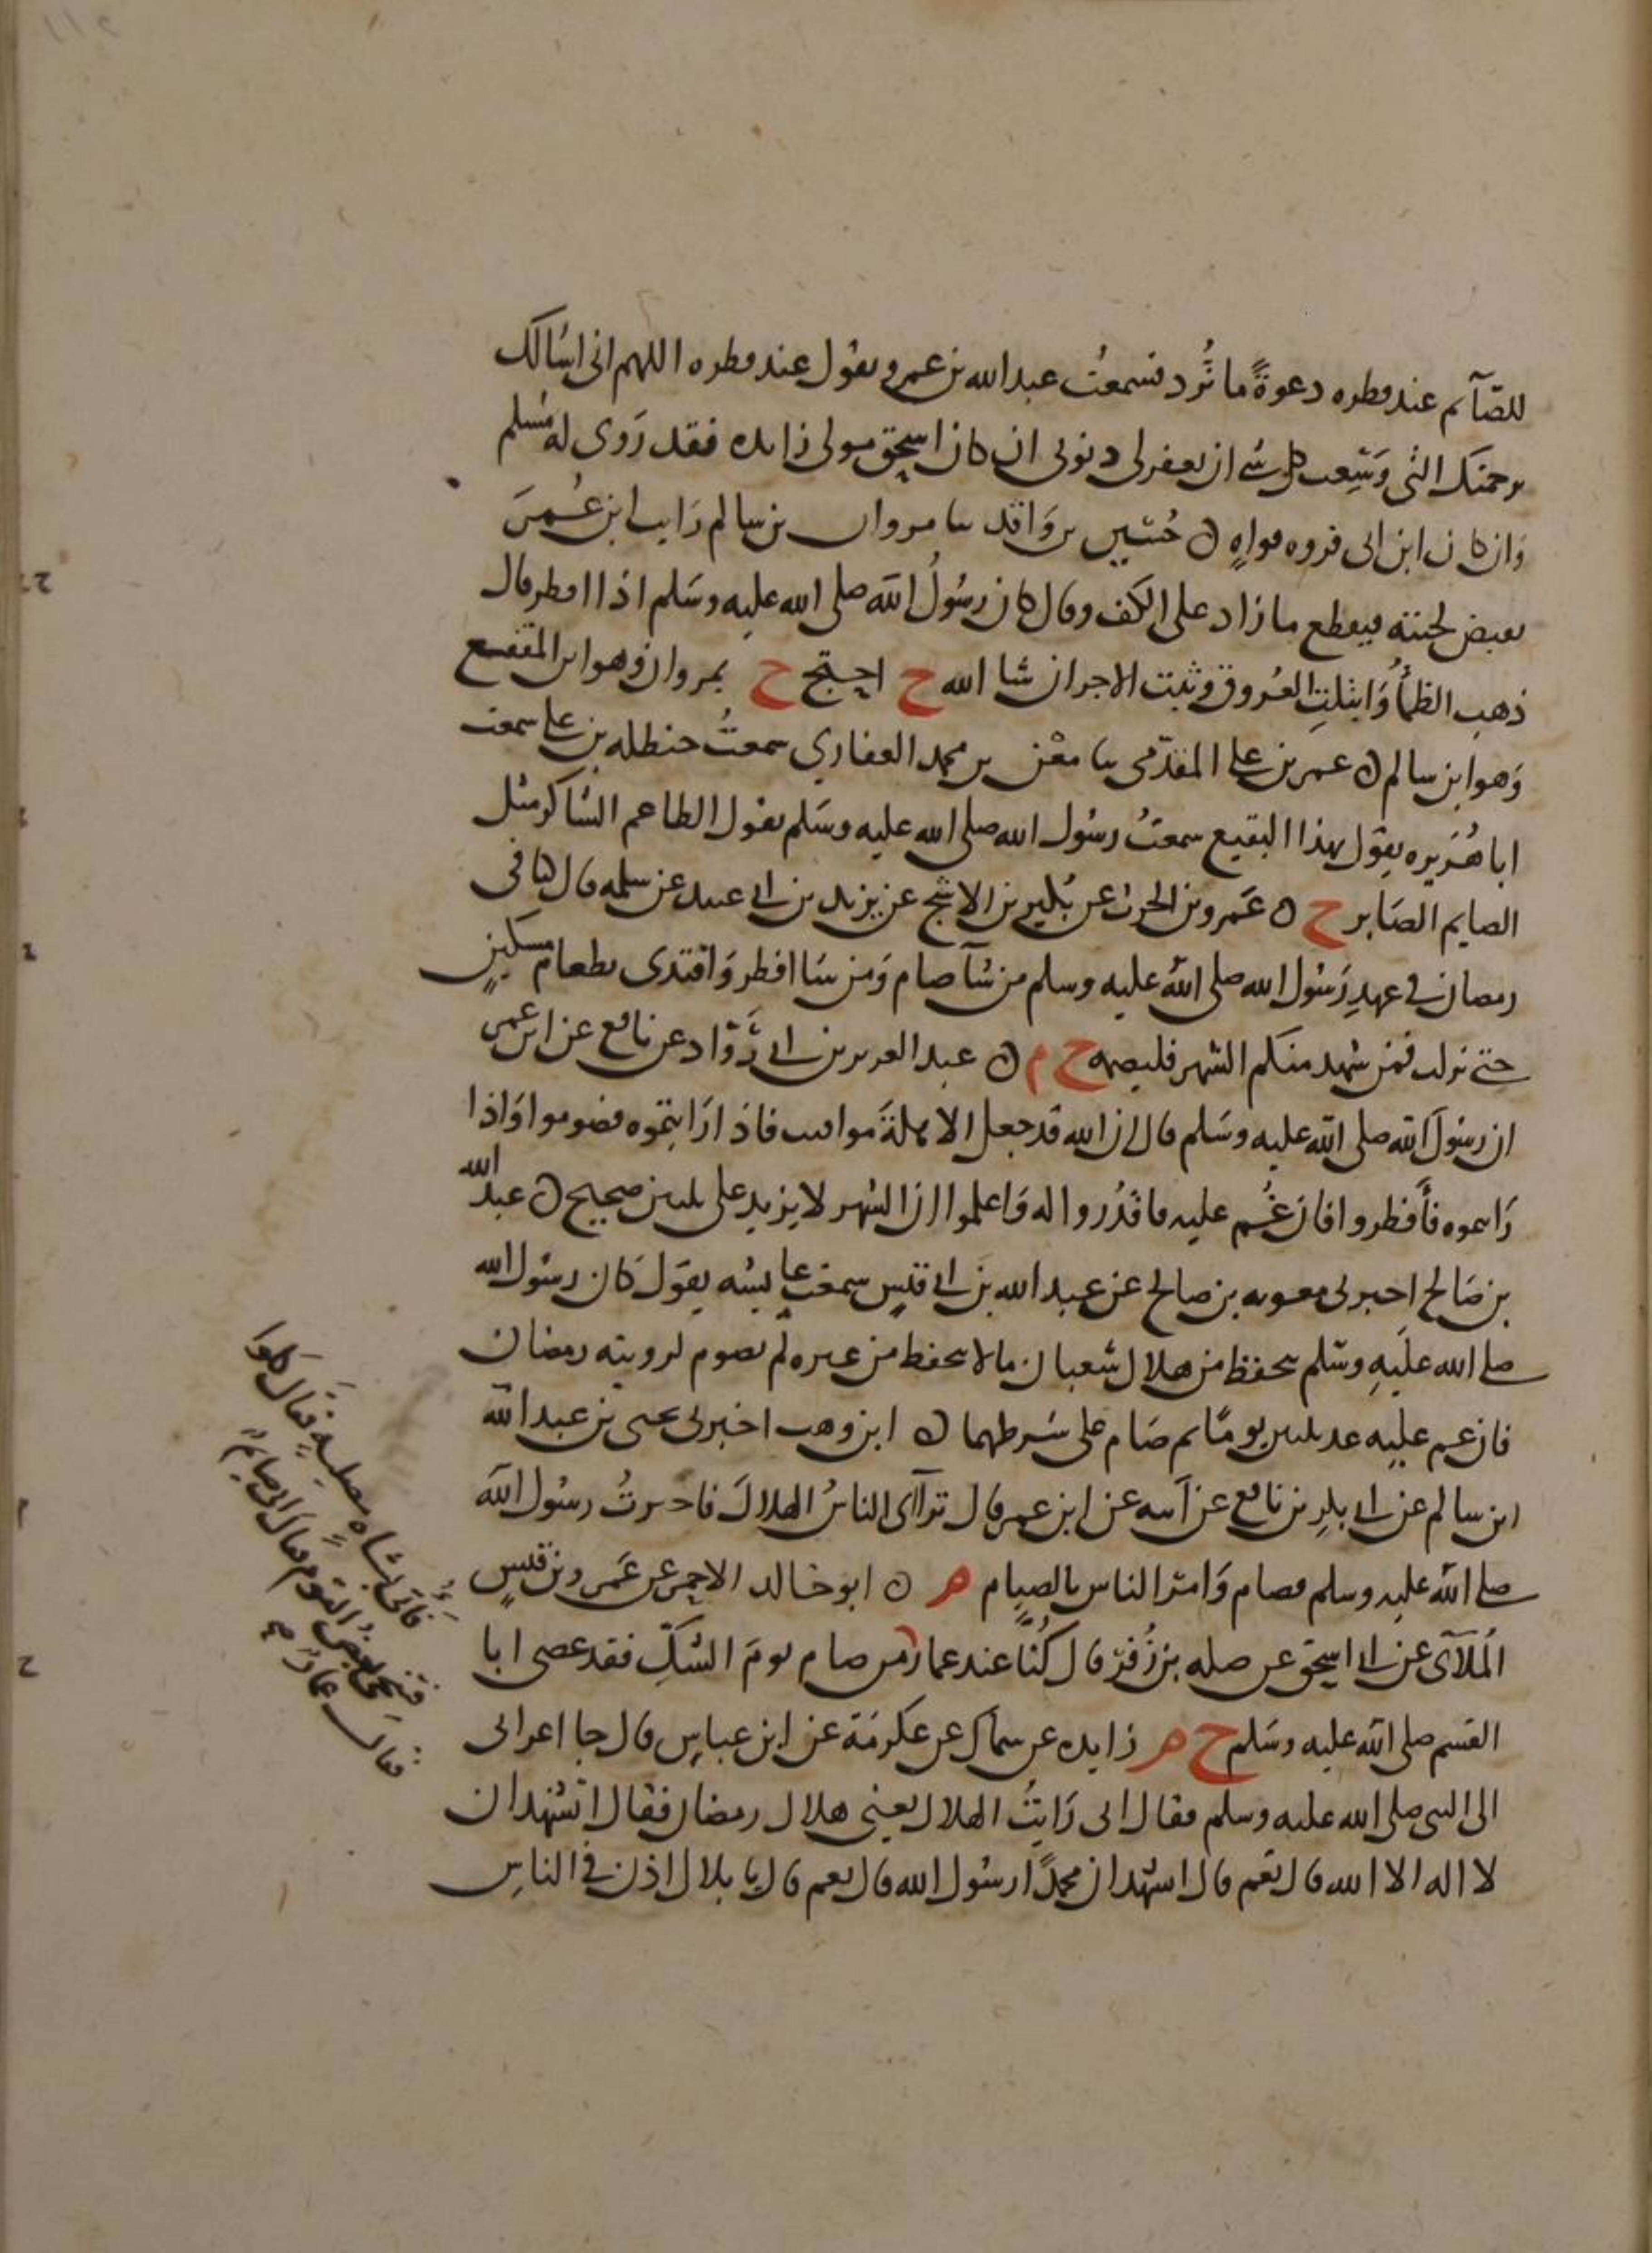 للصآئم عند فطره دعوةً ما تُرد فسمعتُ عبد الله بن عمرو يقول عند فطره اللهم اني اسالك
برحمتك التي وَسِعت كل شي ان تغفر لي ذنوبي ان كان اسحق مولى زايده فقد رَوى له مسلم
وَان كان ابن ابي فروه فواهٍ ن حُسَين بن وَاقد سا مروان بن سالم رَايت ابن عُمَر
يقبض لحيته فيقطع ما زاد على الكف وقال كان رسُولُ الله صلى الله عليه وسَلم اذا افطر قال
ذهب الظمأُ وَابتلتِ العُروق وثبت الاجر ان شا الله ح احتج ح بمروان وهو ابن المقفع
وَهو ابن سالم ن عمر بن علي المقدّمي سا معْن بن محمد الغفاري سمعتُ حنظله بن علي سمعت
ابا هُرَيره يقول بهذا البقيع سمعتُ رسُول الله صلى الله عليه وسَلم يقول الطاعم الشاكر مثل
الصايم الصَابر ح ن عَمرو بن الحرث عن بُكير بن الاشج عن يزيد بن ابي عبيد عن سلمه قال كنا في
رمضان في عهدِ رَسُول الله صلى الله عليه وسلم من شآ صام وَمن شا افطر وَافتدى بطعام مسكينٍ
حتى نزلت فمن شهد منكم الشهر فليصمه ح م ن عبد العزيز بن ابي رَوّاد عن نافع عن ابن عمر
ان رسُولَ الله صلى الله عليه وسَلم قال ان الله قد جعل الاهلةَ مواقيت فاذا رَايتموه فصوموا وَاذا
رَايتموه فأَفطروا فان غُم عليه فاقدُروا له وَاعلموا ان الشهر لا يزيد على ثلثين صحيح ن عبد الله
بن صَالح اخبرني معويه بن صالح عن عبد الله بن ابي قيس سمعت عايشه يقول كان رسُول الله
صلى الله علَيهِ وسَلم يتحفظ من هلال شعبان ما لا يتحفظ من غيره ثم يصوم لرويته رمضان
فان غم عليه عد ثلثين يومًا ثم صَام على شرطهما ن ابن وهب اخبرني يحيى بن عبد الله
ابن سالم عن ابي بكرِ بن نافع عن اَبيه عن ابن عمر قال ترآاى الناسُ الهلالَ فاخبرتُ رسُول الله
صلى الله عليه وسلم فصام وَامر الناس بالصيام م ن ابو خالد الاحمر عن عَمرو بن قيسٍ
المُلآئي عن ابي اسحق عن صله بن زُفرَ قال كُنّا عند عمار من صام يومَ الشكِّ فقد عصى ابا
القسم صلى الله عليه وسَلم ح م زايده عن سماك عن عكرمَة عن ابن عباسٍ قال جا اعرابي
الى النبي صلى الله عليه وسلم فقال اني رَايتُ الهلال يعني هلال رمضان فقال اتشهد ان
لا اله الا الله قال نعم قال اتشهد ان محمدًا رسُول الله قال نعم قال يا بلال اذن في الناسِ
فاُتي بشاه مصليةٍ فقال كلوا
فتنحى بعضُ القوم فقال اني صايمٌ
فقال عمارٌ